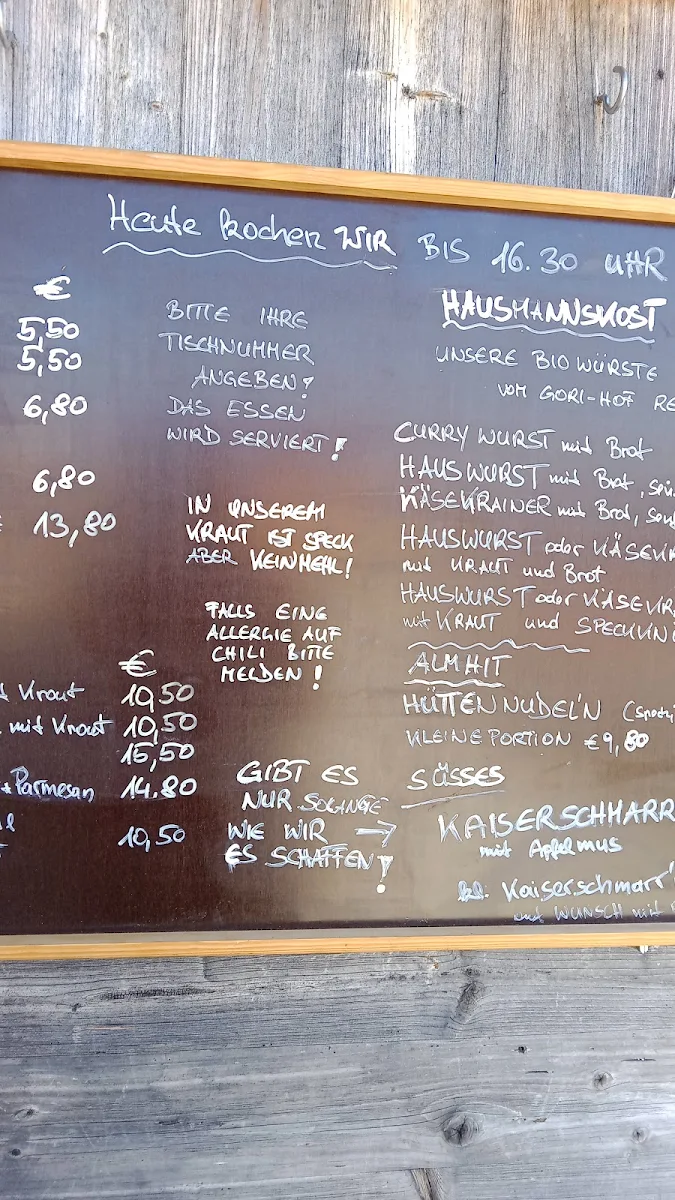 Heute kochen WIR BIS 16.30 UHR
€
5,50
5,50
6,80
6,80
13,80
€
Kraut 10,50
mit Kraut 10,50
15,50
Parmesan 14.80
10,50
BITTE IHRE
TISCHNUMMER
ANGEBEN!
DAS ESSEN
WIRD SERVIERT!
IN UNSEREM
KRAUT IST SPECK
ABER KEIN MEHL!
FALLS EINE
ALLERGIE AUF
CHILI BITTE
MELDEN!
GIBT ES
NUR SOLANGE
WIE WIR →
ES SCHAFFEN!
HAUSMANNSKOST
UNSERE BIO WÜRSTE
VOM GORI-HOF RE
CURRY WURST mit Brot
HAUSWURST mit Brot,
KÄSEKRAINER mit Brot,
HAUSWURST oder KÄSEKR
mit KRAUT und Brot
HAUSWURST oder KÄSEKR
mit KRAUT und SPECKKN
ALMHIT
HÜTTENNUDEL'N
KLEINE PORTION €9,80
SÜSSES
KAISERSCHMARR
mit Apfelmus
kl. Kaiserschmarr'
auf WUNSCH mit